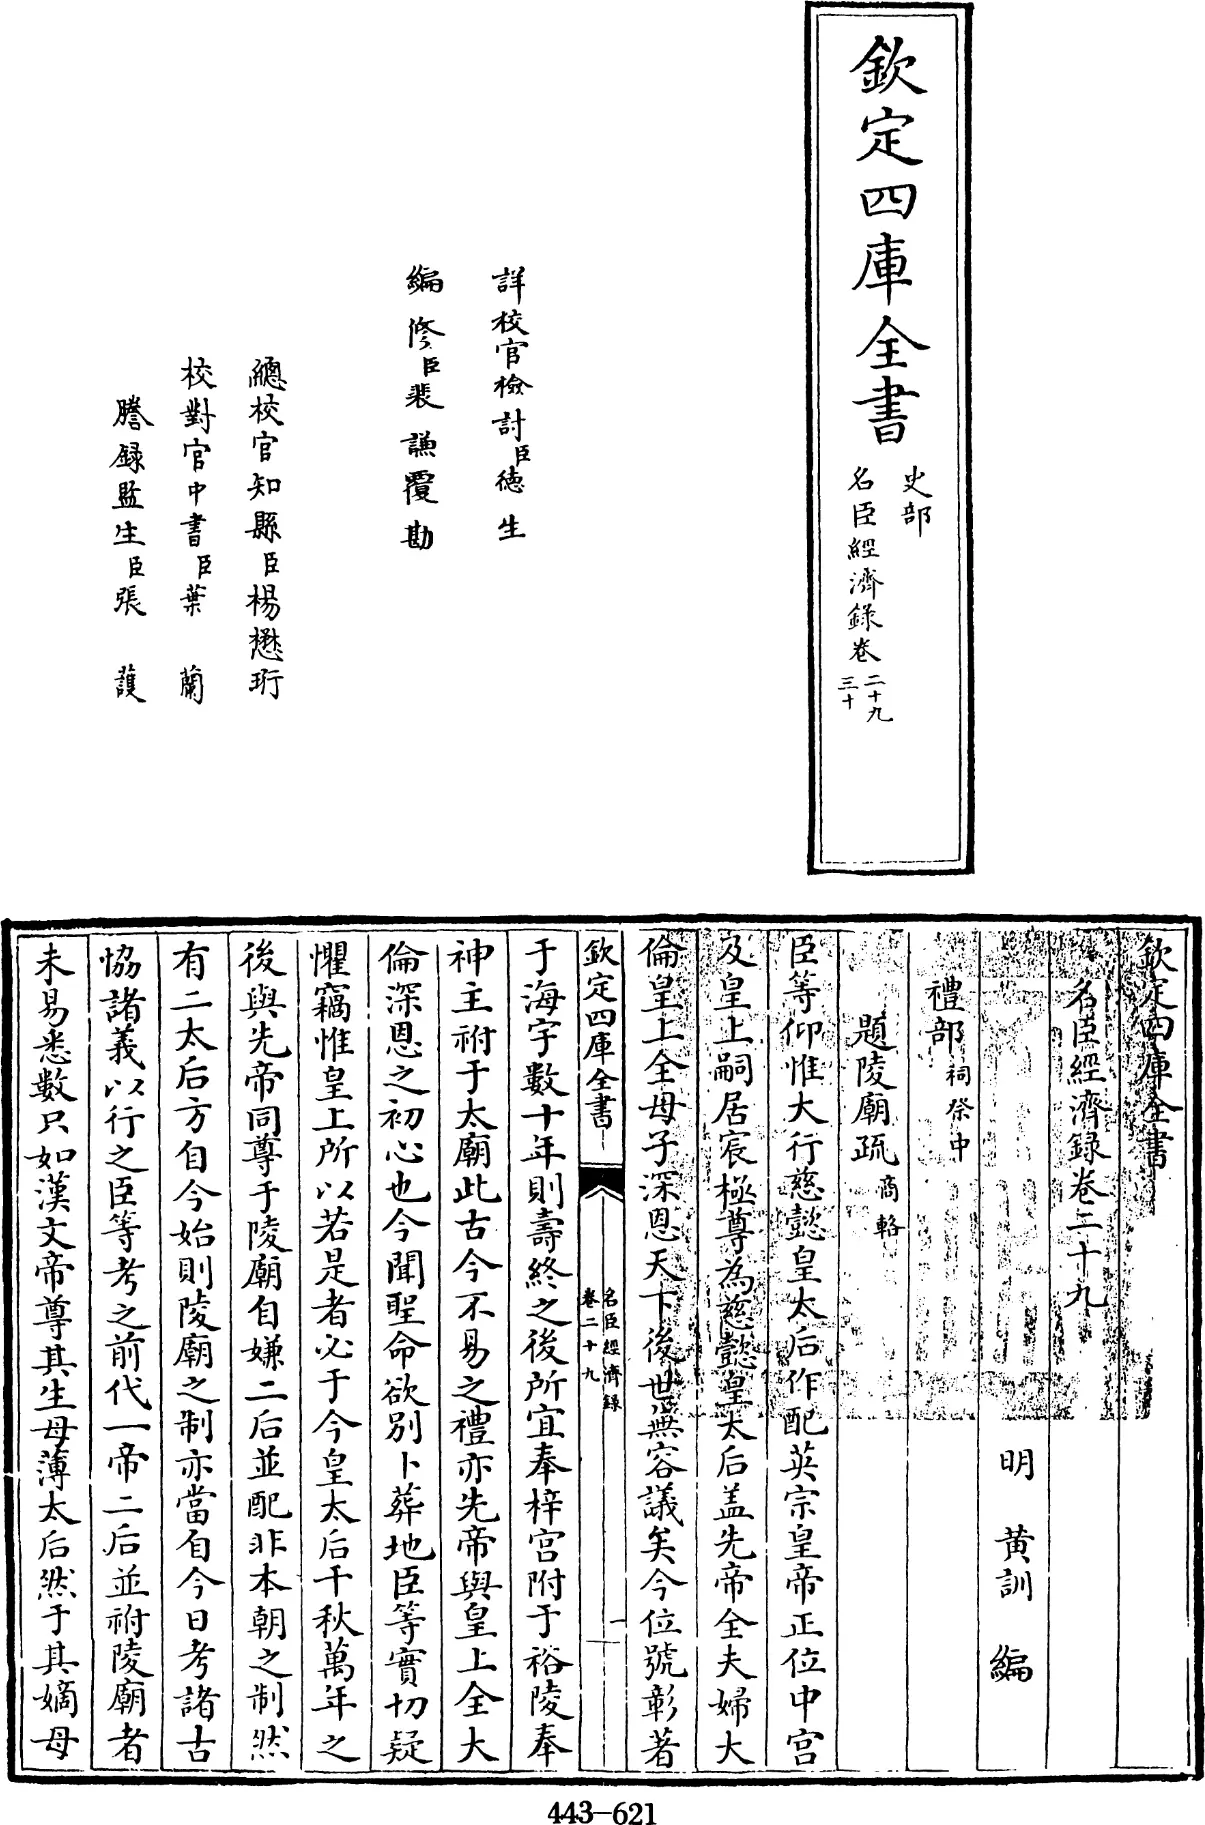 欽定四庫全書
史部
名臣經濟錄卷二十九
三十
詳校官檢討臣德生
編修臣裴謙覆勘
總校官知縣臣楊懋珩
校對官中書臣葉蘭
謄錄監生臣張護
欽定四庫全書
名臣經濟錄卷二十九
明 黃訓 編
禮部祠祭中
題陵廟疏商輅
臣等仰惟大行慈懿皇太后作配英宗皇帝正位中宫
及皇上嗣居宸極尊為慈懿皇太后盖先帝全夫婦大
倫皇上全母子深恩天下後世無容議矣今位號彰著
欽定四庫全書
名臣經濟錄
卷二十九
一
于海宇數十年則壽終之後所宜奉梓宫附于裕陵奉
神主祔于太廟此古今不易之禮亦先帝與皇上全大
倫深恩之初心也今聞聖命欲别卜葬地臣等實切疑
懼竊惟皇上所以若是者必于今皇太后千秋萬年之
後與先帝同尊于陵廟自嫌二后並配非本朝之制然
有二太后方自今始則陵廟之制亦當自今日考諸古
協諸義以行之臣等考之前代一帝二后並祔陵廟者
未易悉數只如漢文帝尊其生母薄太后然于其嫡母
443-621